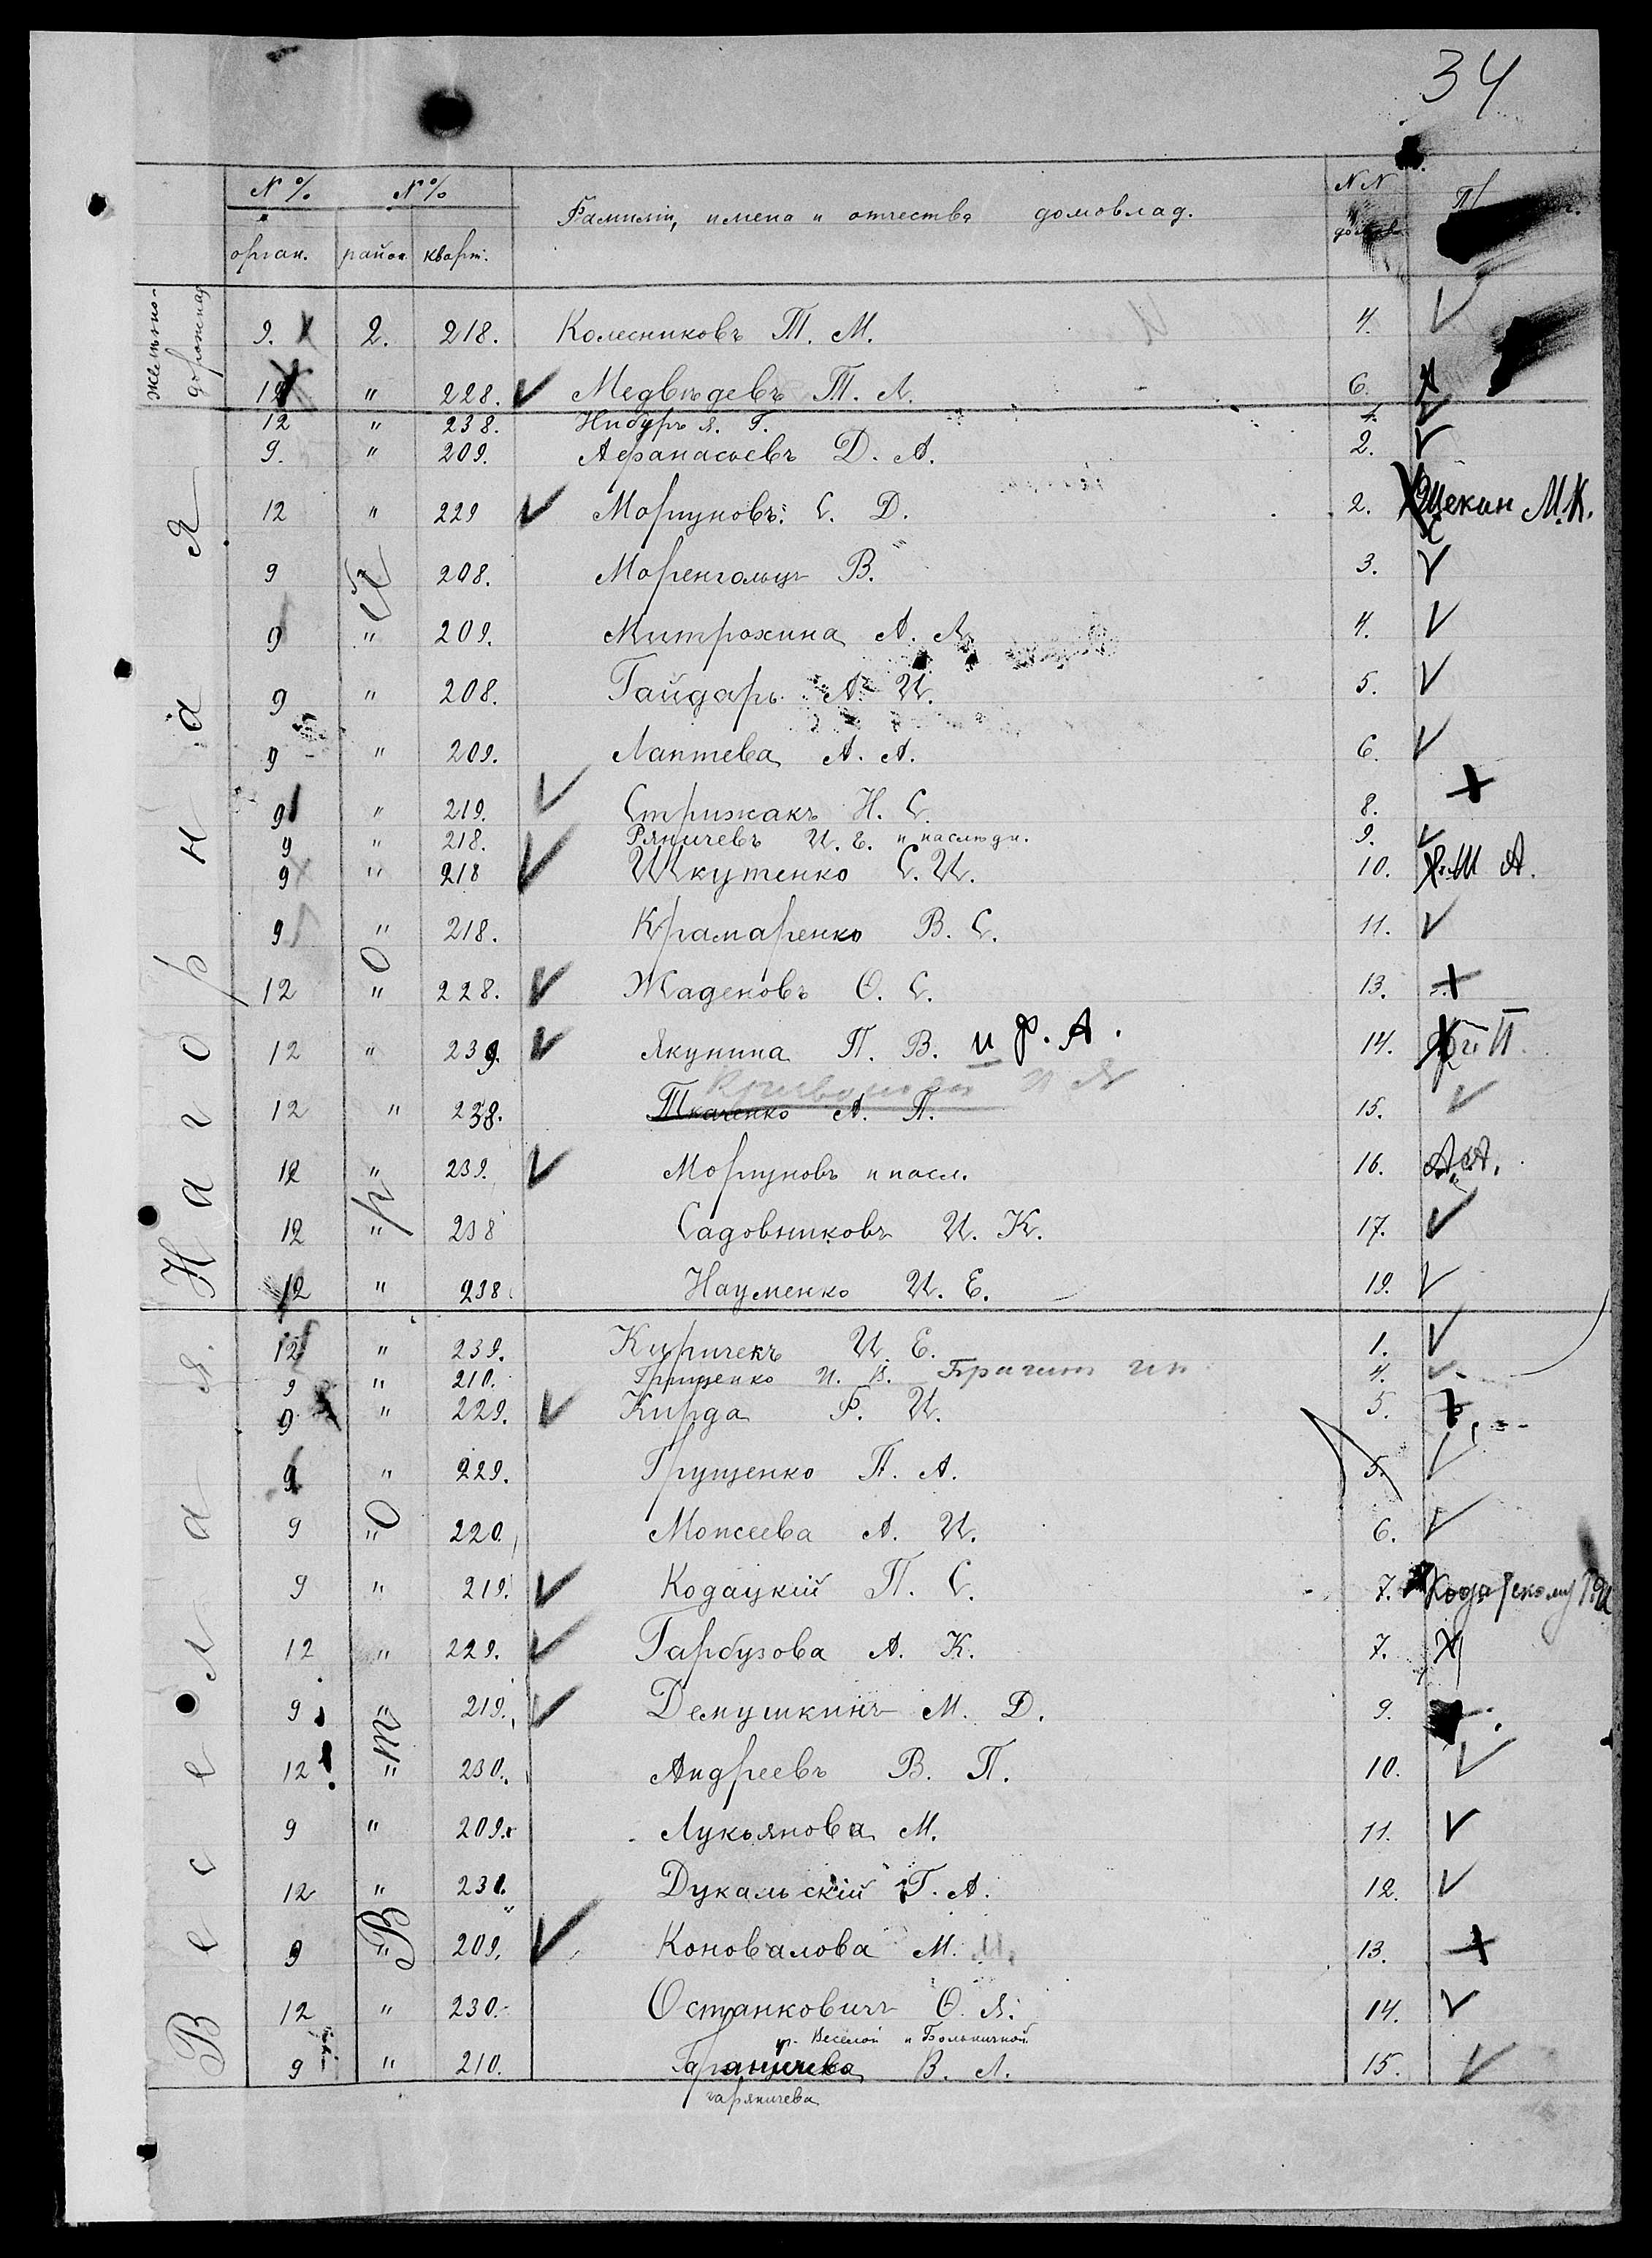 34
N% N% Фамилiи, имена и отчества домовлад. NN
орган. район. кварт.
Желѣзно-дорожная
9. 2. 218. Колесниковъ Т. М. 4.
12 " 228. Медвѣдевъ Т. Л. 6.
Нагорная
12 " 238. Нибуръ Я. Г.
9. " 209. Афанасьевъ Д. А. 2.
12 " 229 Моргуновъ С. Д. 2. Щекин М.К.
9 208. Моренгольцъ В. 3.
9 " 209. Митрохина А. Л. 4.
9 " 208. Гайдаръ А. И. 5.
9 " 209. Лаптева А. А. 6.
9 " 219. Стрижакъ Н. С. 8.
9 " 218. Ряничевъ И. Е. и наслѣдн. 9.
9 " 218 Шкутенко С. И. 10.
9 " 218. Крамаренко В. С. 11.
12 " 228. Жаденовъ О. С. 13.
12 " 239. Якунина П. В. и Ф. А. 14.
12 " 238. Ткаченко А. П. 15.
12 " 239. Моргуновъ и насл. 16.
12 " 238 Садовниковъ И. К. 17.
12 " 238. Науменко И. Е. 19.
Веселая.
12 " 239. Киричекъ И. Е. 1.
9 " 210. Грищенко И. В. 4.
9 " 229. Кирда Ф. И. 5.
9 " 229. Грущенко П. А. 5.
9 " 220. Моисеева А. И. 6.
9 " 219. Кодацкiй П. С. 7.
12 " 229. Гарбузова А. К. 7.
9 " 219. Демушкинъ М. Д. 9.
12 " 230. Андреевъ В. П. 10.
9 " 209. Лукьянова М. 11.
12 " 230. Дукальскiй Г. А. 12.
9 " 209. Коновалова М. 13.
12 " 230. Останковичъ О. Я. 14.
Веселой и Больничной
9 " 210. В. Л. 15.
гаряничева
Второй